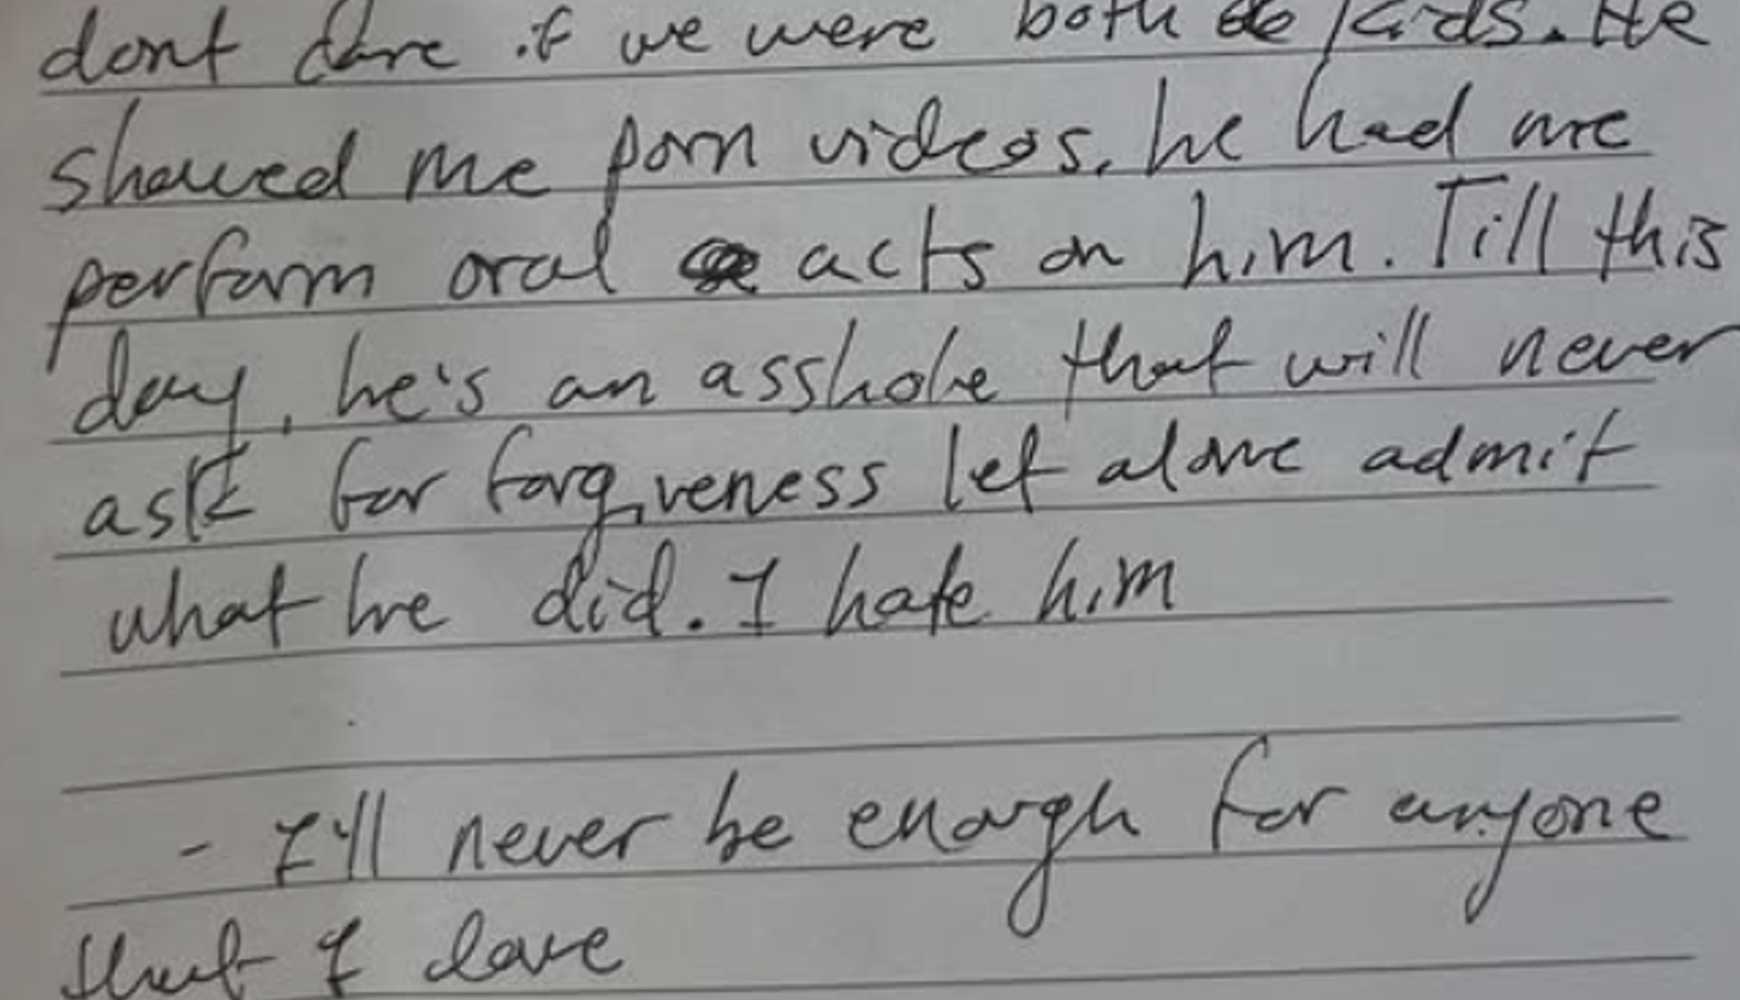 dont care if we were both kids. He
showed me porn videos. he had me
perform oral acts on him. Till this
day, he's an asshole that will never
ask for forgiveness let alone admit
what he did. I hate him
- I'll never be enough for anyone
that I love